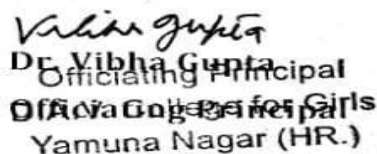 Vibha Gupta
Dr. Vibha Gupta
Officiating Principal
Officiating Principal
D.A.V. College for Girls
Yamuna Nagar (HR.)